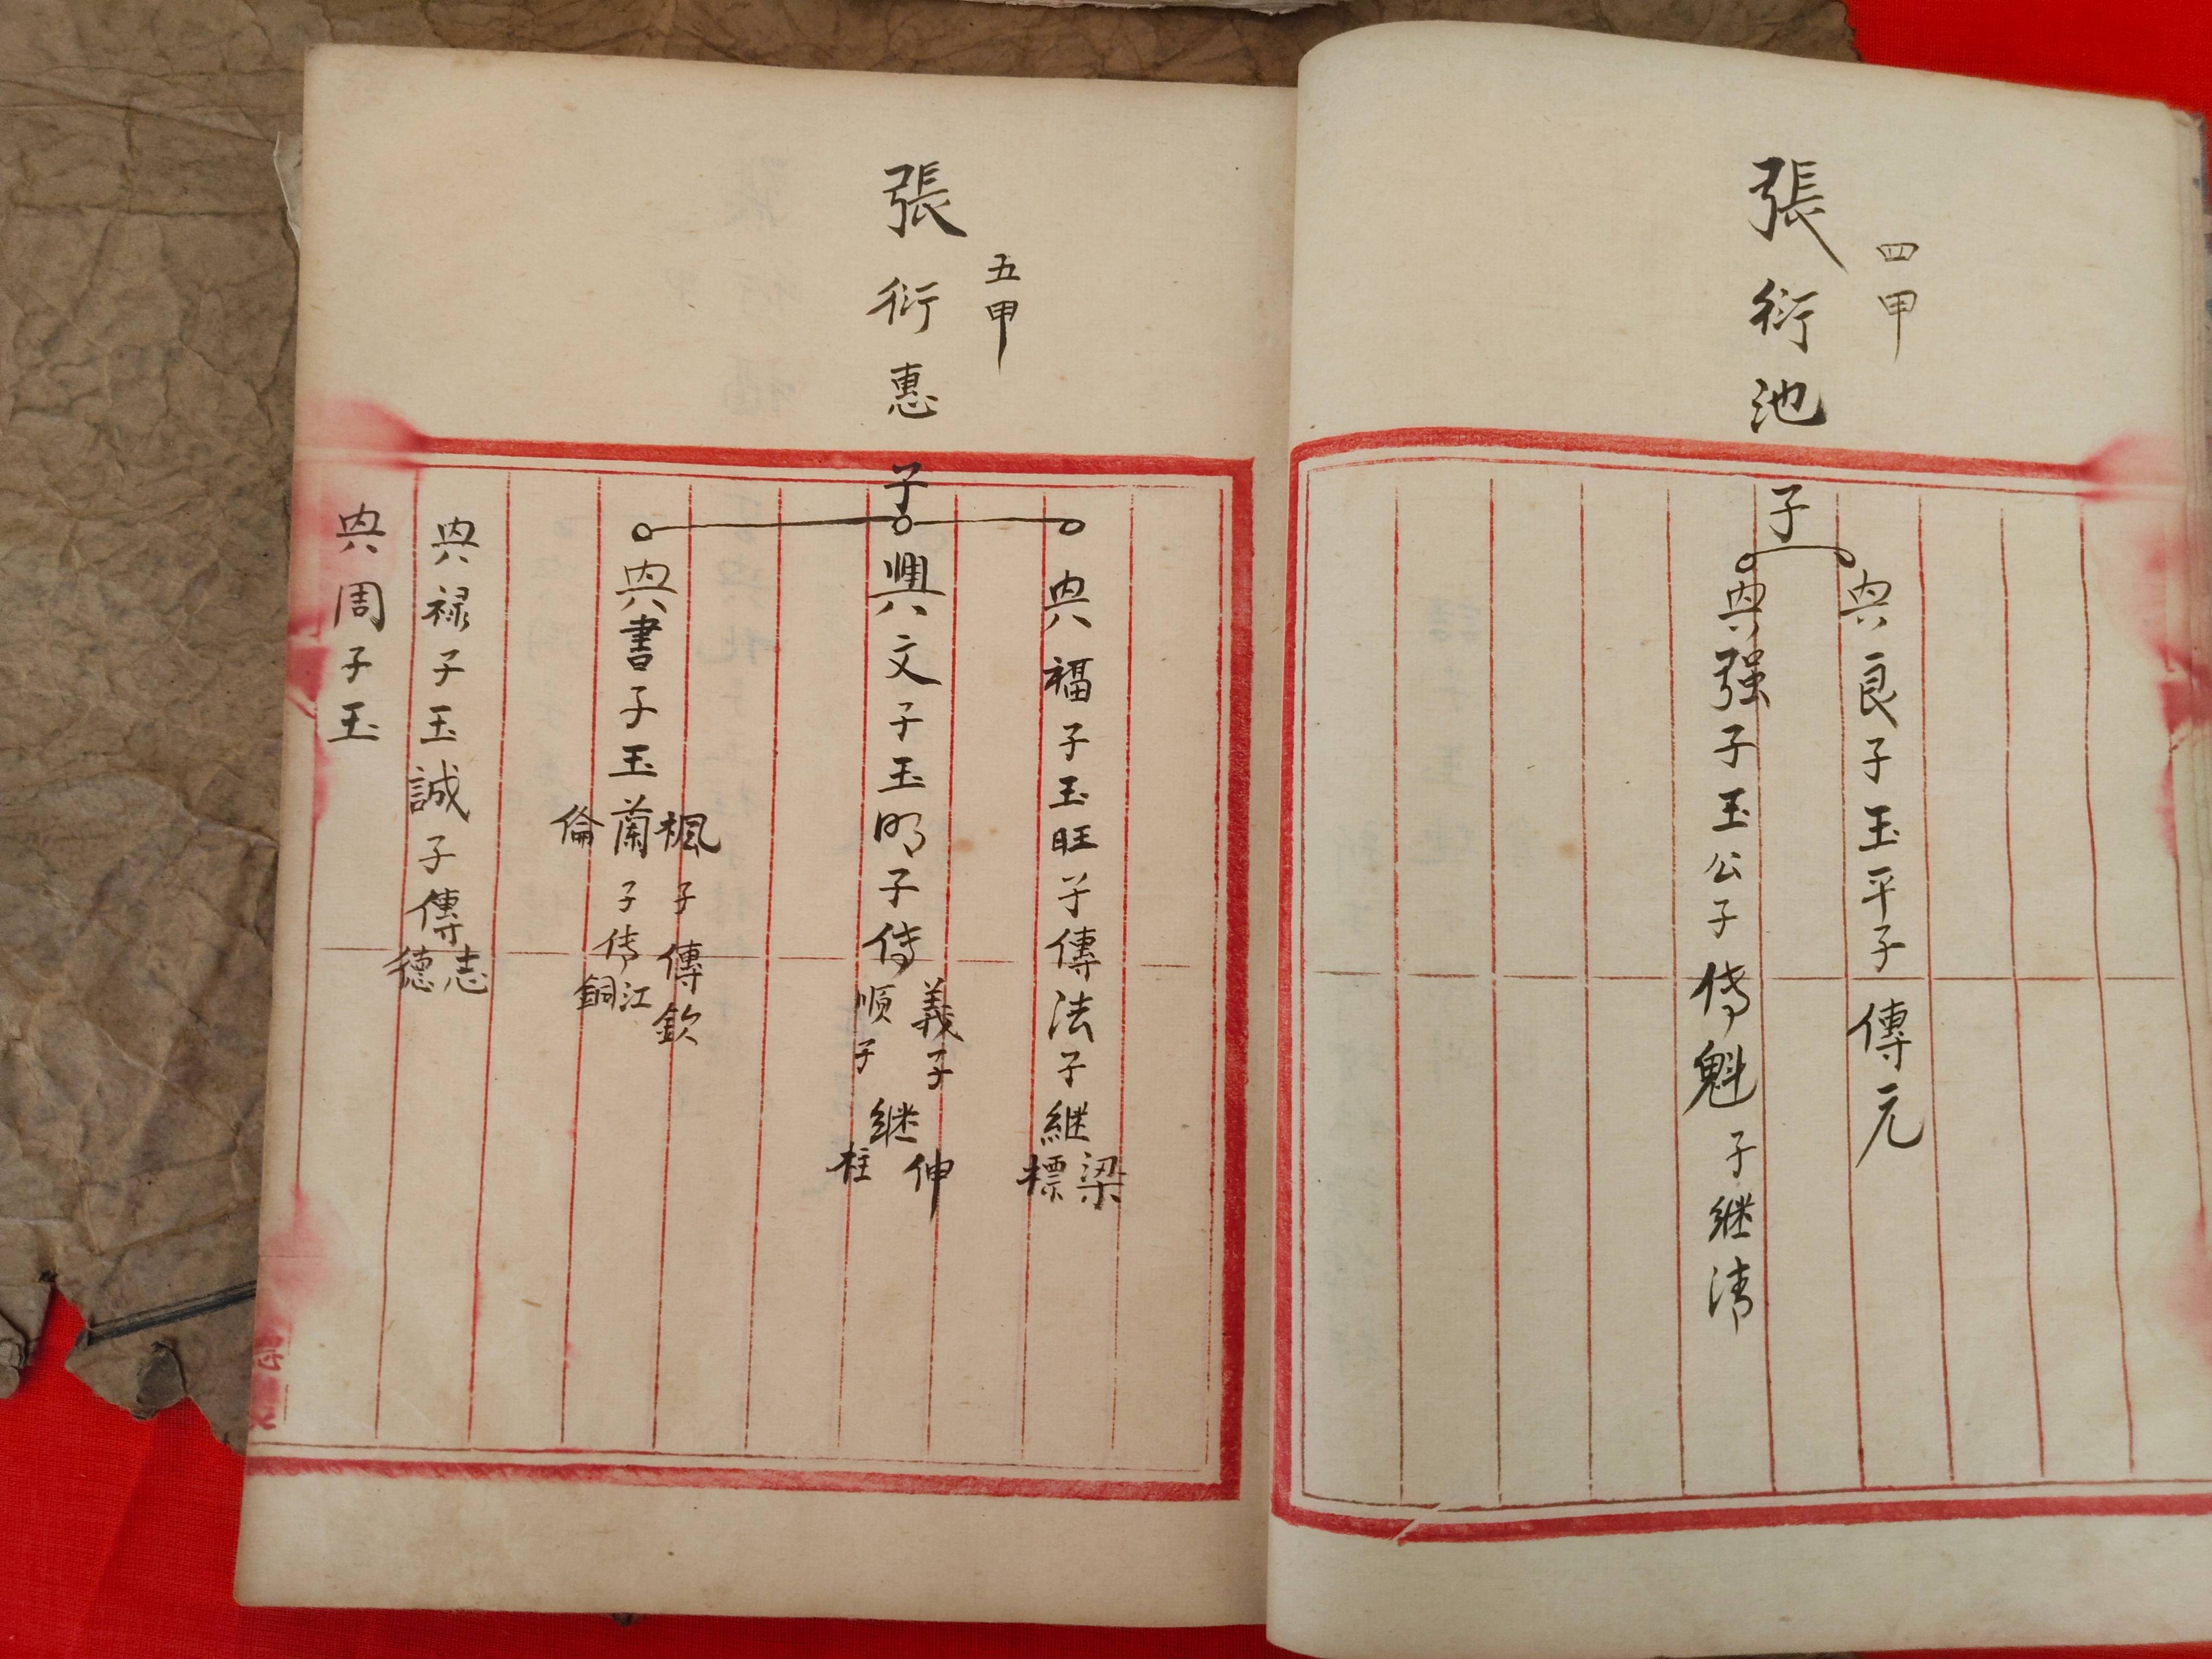 四甲
張衍池
子
興良子玉平子傳元
興强子玉公子傳魁子继清
五甲
張衍惠
子
興福子玉旺子傳法子継
梁
標
興文子玉明子傳
義子
順子
继
伸
柱
興書子玉
楓子傳欽
蘭子傳
江
銅
倫
興禄子玉誠子傳
志
德
興周子玉